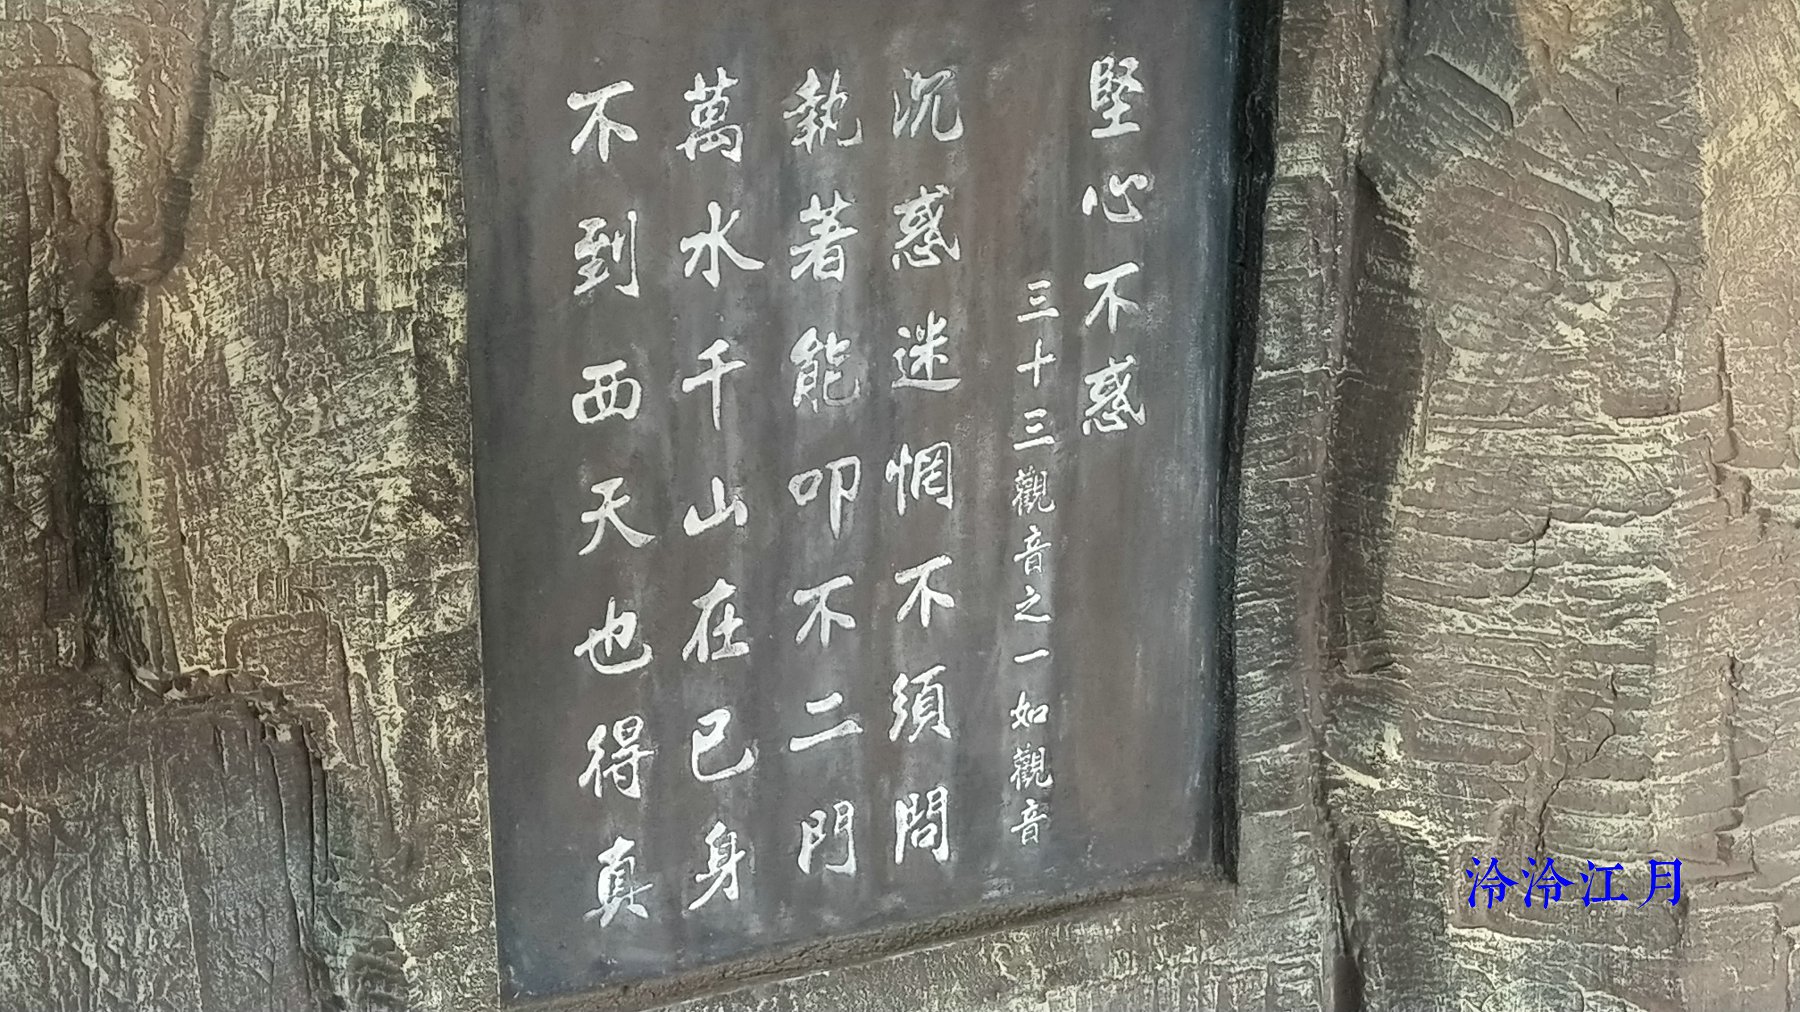 堅心不惑
三十三觀音之一如觀音
沉惑迷惘不須問
執著能叩不二門
萬水千山在已身
不到西天也得真
泠泠江月